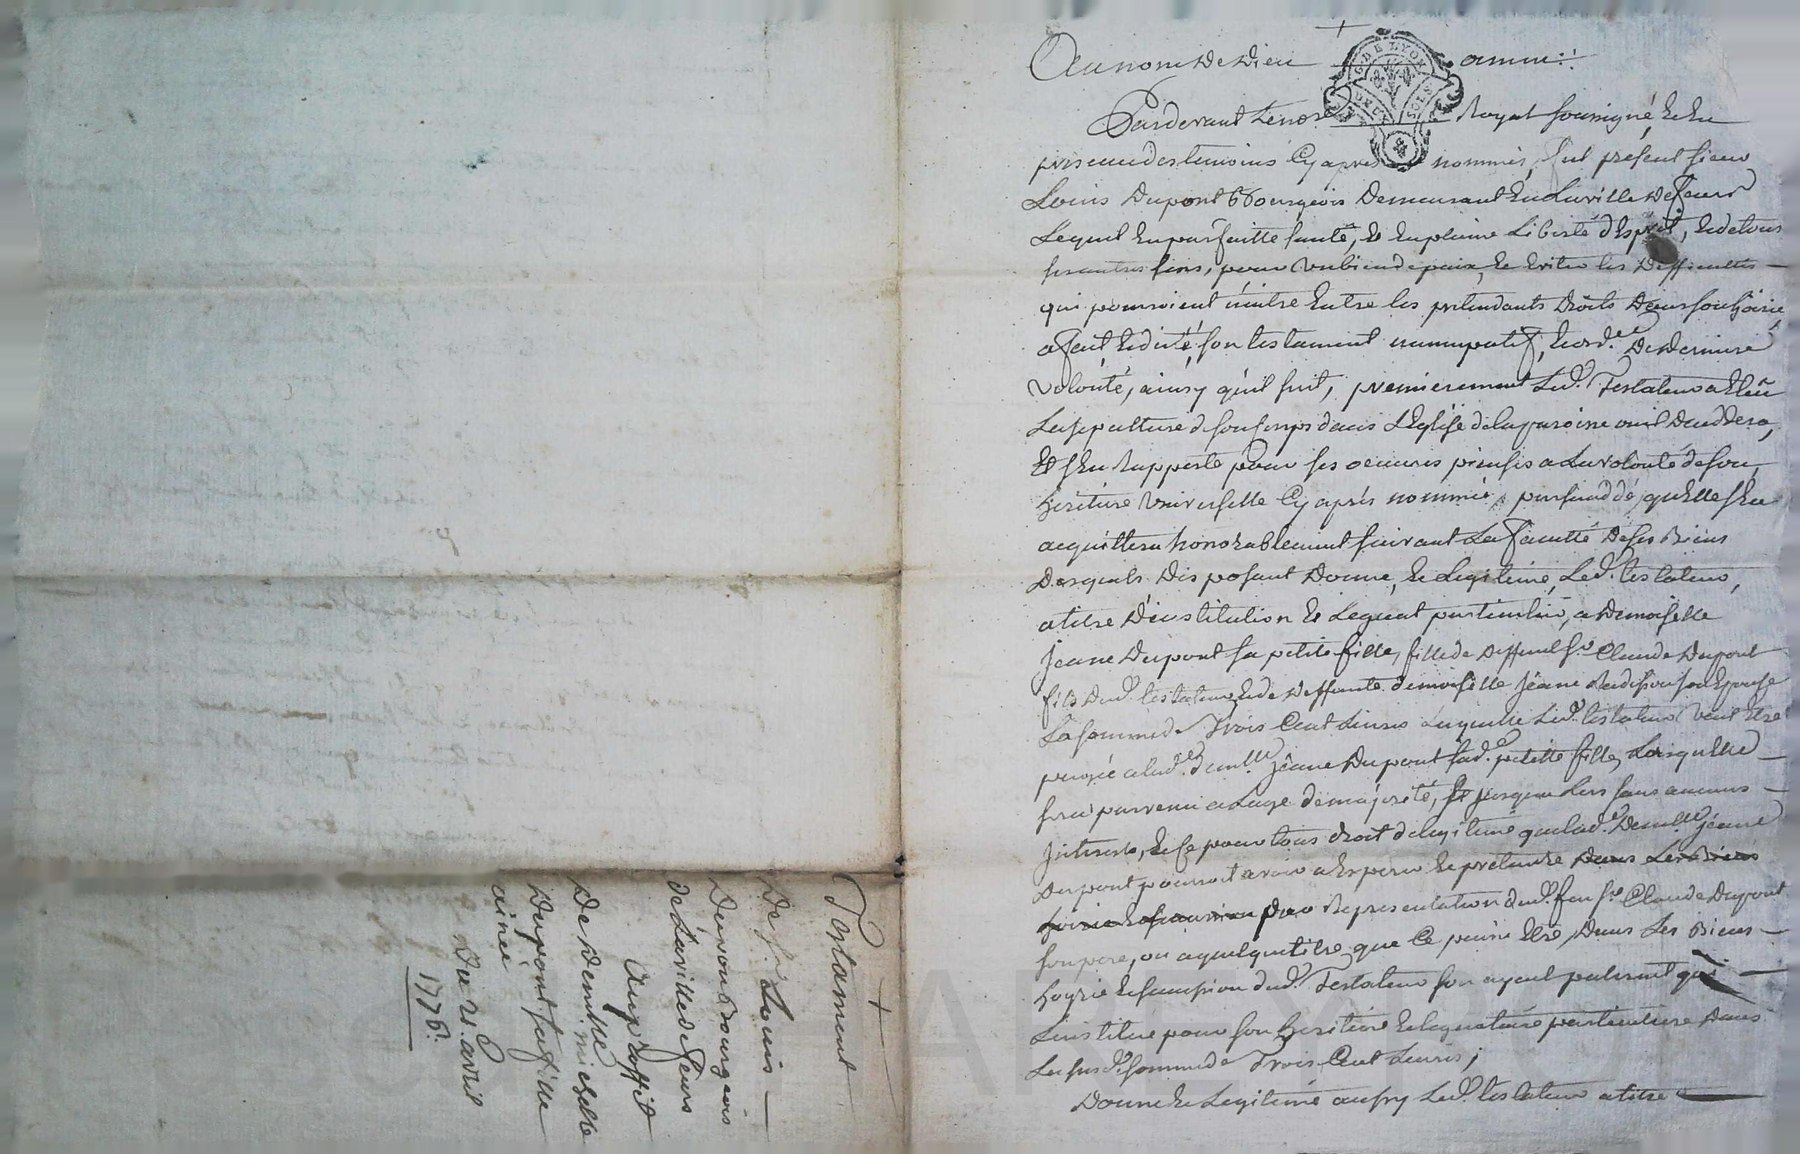 Au nom de Dieu amen
G. DE LYON
DEUX SOLS
Pardevant Le no.re Royal soussigné, & En
presence des temoins Cy apres nommés, fut present sieur
Louis Dupont Bourgeois Demeurant En La ville de feurs
Lequel En parfaitte santé, & En pleine Liberté d'Esprit, & de tous
ses autres sens, pour un bien de paix, & Eviter les Difficultés
qui pourroient naitre Entre les pretendants Droits Dans son hoirie,
a fait & dicté son testament nuncupatif, & ord.ce De derniere
volonté, ainsy qu'il suit, premierement Led. Testateur a Eleu
La sepulture de son Corps dans L'Eglise de la paroisse ou il Deceddera,
Et s'En Rapporte pour ses oeuvres pieuses a La volonté de son
heritiere universelle Cy après nommée, persuaddé, qu'Elle s'En
acquittera honorablement suivant La faculté De ses Biens
Desquels Disposant Donne, & Legitime, Led. testateur,
a titre D'institution & Leguat particulier, a Demoiselle
Jeane Dupont sa petite fille, fille de Deffunt s.r Claude Dupont
fils Dud. testateur & de Deffunte demoiselle Jeane son Epouse
La somme de Trois Cent Livres Laquelle Led. testateur veut Etre
payée a lad. dem.lle Jeane Dupont sad. petitte fille, Lorsqu'Elle
sera parvenue a L'age de majorité, & jusqu'a Lors sans aucuns
Interets, & Ce pour tous droit de legitime que lad. Dem.lle Jeane
Dupont pourroit avoir a Esperer & pretendre Dans Les Biens
hoirie & succession par Representation dud. feu s.r Claude Dupont
son pere, ou a quelque titre que Ce puisse Etre, Dans Les Biens
hoyrie & succession dud. Testateur son ayeul paternel qui
L'institue pour son heritiere & leguataire particuliere Dans
La susd. somme de Trois Cent Livres;
Donne & Legitime aussy Led. testateur a titre
Testament
De s.r Louis
Dupont Bourgeois
de La ville de feurs
Au profit
De demlle michelle
Dupont sa fille
ainée
Du 21. avril
1778.